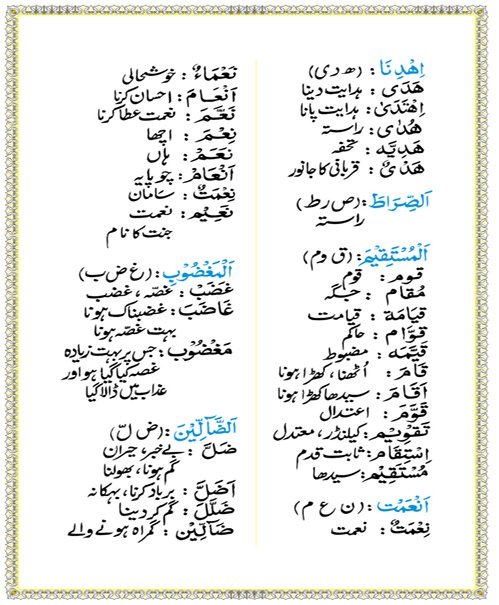 اِهْدِنَا : (ھ د ی)
هَدَی : ہدایت دینا
اِهْتَدَیٰ : ہدایت پانا
هُدٰی : راستہ
هَدِیَّه : تحفہ
هَدْیٌ : قربانی کا جانور
اَلصِّرَاطَ : (ص ر ط)
راستہ
اَلْمُسْتَقِیْمَ : (ق و م)
قَوم : قوم
مُقَام : جگہ
قِیَامَة : قیامت
قَوَّام : حاکم
قَیِّمَه : مضبوط
قَامَ : اُٹھنا، کھڑا ہونا
اَقَامَ : سیدھا کھڑا ہونا
قَوَّمَ : اعتدال
تَقْوِیْم : کیلنڈر، معتدل
اِسْتِقَام : ثابت قدم
مُسْتَقِیْم : سیدھا
اَنْعَمْتَ : (ن ع م)
نِعْمَتٌ : نعمت
نَعْمَاءٌ : خوشحالی
اَنْعَامَ : احسان کرنا
نَعَّمَ : نعمت عطا کرنا
نِعْمَ : اچھا
نَعَمْ : ہاں
اَنْعَامْ : چوپایہ
نِعْمَتٌ : سامان
نَعِیْم : نعمت
جنت کا نام
اَلْمَغْضُوْبِ : (غ ض ب)
غَضَبَ : غصّہ، غضب
غَاضَبَ : غضبناک ہونا
بہت غصّہ ہونا
مَغْضُوْب : جس پر بہت زیادہ
غصہ کیا گیا ہو اور
عذاب میں ڈالا گیا
اَلضَّآلِّیْنَ : (ض ل ّ)
ضَلَّ : بے خبر، حیران
گم ہونا، بھولنا
اَضَلَّ : برباد کرنا، بہکانہ
ضَلَّلَ : گم کر دینا
ضَآلِّیْن : گمراہ ہونے والے